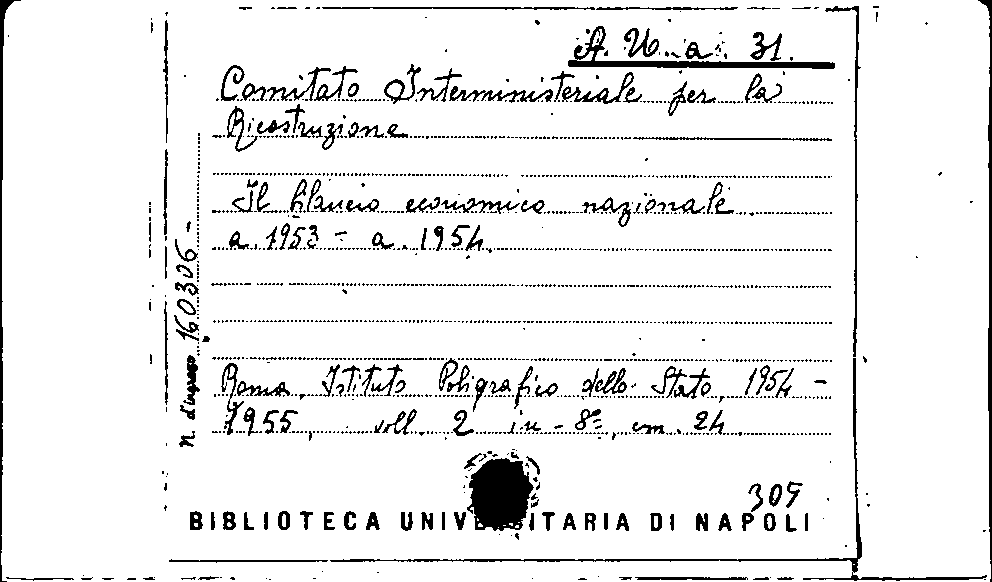 A. U. a. 31.
Comitato Interministeriale per la
Ricostruzione
Il bilancio economico nazionale
a. 1953 - a. 1954.
n. d'ingresso 160306 -
Roma, Istituto Poligrafico dello Stato, 1954 -
1955, voll. 2 in - 8º, cm. 24.
309
BIBLIOTECA UNIVERSITARIA DI NAPOLI